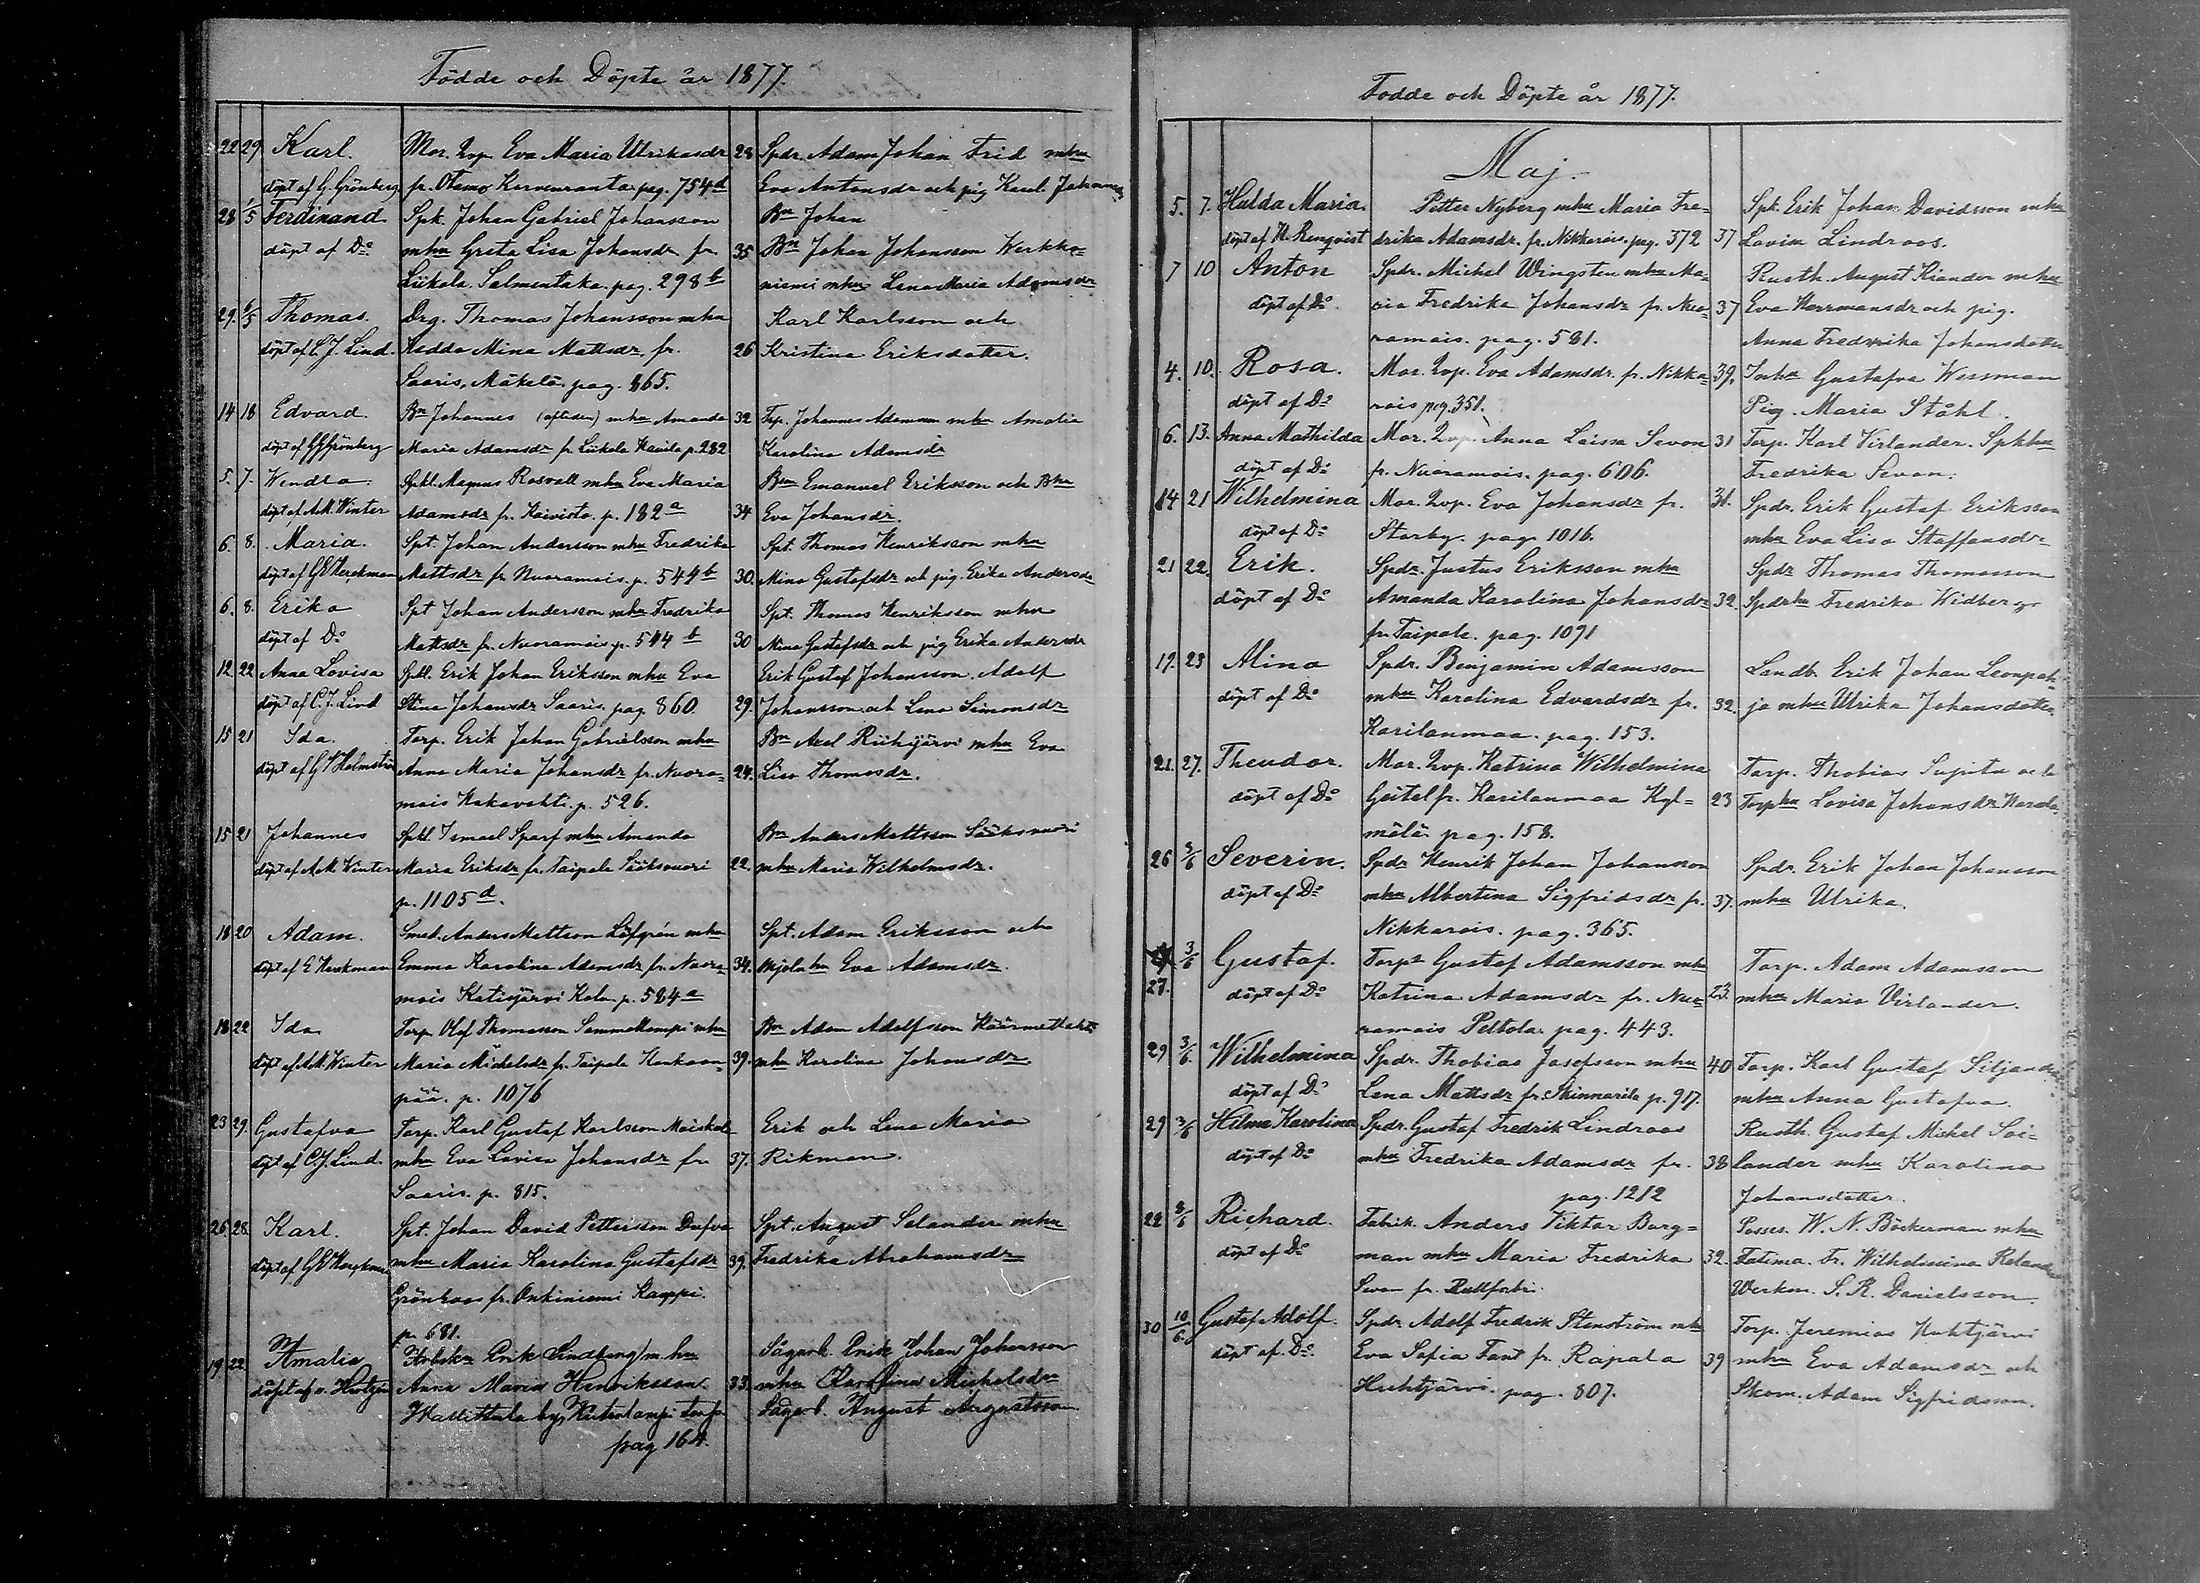 Födde och Döpte år 1877.
22 29 Karl. Mor. Qvp. Eva Maria Ulrikasdr 28 Spdr. Adam Johan Frid mhu
döpt af G. Grönberg fr. Otamo Korvenranta pag. 754 d Eva Antonsdr och pig Karol. Johansdr
28 1/5 Ferdinand Spk. Johan Gabriel Johansson Bn Johan
döpt af Do mhu Greta Lisa Johansdr fr. 35 Bn Johan Johansson Werkko-
Liikola Salmentaka pag. 298 b niemi mhu Lena Maria Adamsdr
29. 6/5 Thomas. Drg. Thomas Johansson mhu Karl Karlsson och
döpt af C. J. Lind. Hedda Mina Mattsdr. fr. 26 Kristina Eriksdotter.
Saaris, Mäkelä pag. 865.
14 18 Edvard. Bn Johannes (afliden) mhu Amanda 32 Trp. Johannes Adamsson mhu Amalia
döpt af G. Grönberg Maria Adamsdr fr. Liikola Kauila p. 282 Karolina Adamsdr
5. 7. Wendla. Spkl. Magnus Rosvall mhu Eva Maria Bn Emanuel Eriksson och Bhu
döpt af A.M. Winter Adamsdr fr. Koivisto p. 182 a 34 Eva Johansdr.
6. 8. Maria. Spt. Johan Andersson mhu Fredrika Spt. Thomas Henriksson mhu
döpt af G E Herckman Mattsdr fr. Nuoramois. p. 544 b 30. Mina Gustafsdr och pig. Erika Andersdr
6. 8. Erika Spt Johan Andersson mhu Fredrika Spt. Thomas Henriksson mhu
döpt af Do Mattsdr fr. Nuoramois p. 544 b 30 Mina Gustafsdr och pig Erika Andersdr
12 22 Anna Lovisa Spkl. Erik Johan Eriksson mhu Eva Erik Gustaf Johansson. Adolf
döpt af C. J. Lind Stina Johansdr Saaris. pag. 860. 29. Johansson och Lena Simonsdr
15 21 Ida. Torp. Erik Johan Gabrielsson mhu Bn Axel Riihijärvi mhu Eva
döpt af G V Holmström Anna Maria Johansdr fr. Nuora- 24. Lisa Thomasdr.
mois Hakavehti. p. 526.
15 21 Johannes Spkl. Ismael Sparf mhu Amanda Bn Anders Mattsson Sääksvuori
döpt af A.M. Winter Maria Eriksdr fr. Taipale Sääksvuori 22. mhu Maria Wilhelmsdr.
p. 1105 d.
18 20 Adam. Smed. Anders Mattson Löfgrén mhu Spt. Adam Eriksson och
döpt af E Herckman Emma Karolina Adamsdr fr. Nuora- 34. Mjoln hu Eva Adamsdr.
mois Katisjärvi Kola p. 584 a
18 22 Ida Torp. Olof Thomasson Sammallampi mhu Bn Adam Adolfsson Käärmettähti
döpt af A.M. Winter Maria Michelsdr fr. Taipale Kankaan- 39. mhu Karolina Johansdr
pää. p. 1076
23 29. Gustafva Torp. Karl Gustaf Karlsson Maiskola Erik och Lena Maria
döpt af C. J. Lind. mhu Eva Lovisa Johansdr fr. 37. Rikman.
Saaris. p. 815.
26 28. Karl. Spt. Johan David Pettersson Dufva Spt. August Selander mhu
döpt af G E Herckman mhu Maria Karolina Gustafsdr 39. Fredrika Abrahamsdr
Grönroos fr. Onkiniemi Kaappi.
p. 681.
19 22 Amalia Erik Lindberg m. hu Sågarb. Erik Johan Johansson
döpt af Anna Maria Henriksson. 33. mhu Karolina Michelsdr
by, torp Sågarb. August Augustsson
pag 164.
Födde och Döpte år 1877.
Maj.
5. 7. Hulda Maria. Petter Nyberg mhu Maria Fre- Spk. Erik Johan Davidsson mhu
döpt af H. Renqvist drika Adamsdr. fr. Nikkarois. pag. 372 37 Lovisa Lindroos.
7 10 Anton Spdr. Michel Wingsten mhu Ma- Rusth. August Kiander mhu
döpt af Do. ria Fredrika Johansdr fr. Nuo- 37 Eva Hermansdr och pig.
ramois. pag. 581. Anna Fredrika Johansdotter
4. 10. Rosa. Mor. Qvp. Eva Adamsdr. fr. Nikka- 39. Inha Gustafva Wessman
döpt af Do rois pag. 351. Pig. Maria Ståhl.
6. 13. Anna Mathilda Mor. Qvp. Anna Loisa Sevon 31 Torp. Karl Virlander. Spkhu
döpt af Do fr. Nuoramois. pag. 606. Fredrika Sevon.
14 21 Wilhelmina Mor. Qvp. Eva Johansdr fr. 31. Spdr. Erik Gustaf Eriksson
döpt af Do Storby. pag. 1016. mhu Eva Lisa Staffansdr
21 22. Erik. Spdr. Justus Eriksson mhu Spdr Thomas Thomasson
döpt af Do Amanda Karolina Johansdr 32. Spdrhu Fredrika Widberg.
fr. Taipale. pag. 1091
19. 23 Alina Spdr. Benjamin Adamsson Landb. Erik Johan Leonpoh-
döpt af Do mhu Karolina Edvardsdr fr. 32. ja mhu Ulrika Johansdotter
Karilanmaa. pag. 153.
21. 27. Theodor. Mor. Qvp. Katrina Wilhelmina Torp. Thobias Supita och
döpt af Do Geitel fr. Karilanmaa Kyl- 23 Torphu Lovisa Johansdr
mälä pag. 158.
26 3/6 Severin. Spdr Henrik Johan Johansson Spdr. Erik Johan Johansson
döpt af Do mhu Albertina Sigfridsdr fr. 37. mhu Ulrika.
Nikkarois. pag. 365.
27. 3/6 Gustaf. Torp Gustaf Adamsson mhu Torp. Adam Adamsson
döpt af Do Katrina Adamsdr fr. Nuo- 23. mhu Maria Virlander.
ramois Peltola. pag. 443.
29 3/6. Wilhelmina Spdr. Thobias Josefsson mhu 40 Torp. Karl Gustaf Siljander
döpt af Do Lena Mattsdr fr. Skinnarila p. 917. mhu Anna Gustafva.
29 3/6 Hilma Karolina Spdr. Gustaf Fredrik Lindroos Rusth. Gustaf Michel Soi-
döpt af Do mhu Fredrika Adamsdr fr. 38 lander mhu Karolina
pag. 1212 Johansdotter.
22 3/6 Richard. Fabrik. Anders Viktor Berg- Posses. W. N. Böckerman mhu
döpt af Do man mhu Maria Fredrika 32. Fatima. Fr. Wilhelmina
Sevon fr. Werkm. S. R. Danielsson.
30 10/6. Gustaf Adolf. Spdr Adolf Fredrik Stenström mhu Torp. Jeremias Huhtjärvi
döpt af Do. Eva Sofia Fant fr. Rapala 39 mhu Eva Adamsdr och
Huhtjärvi. pag. 807. Skom. Adam Sigfridsson.